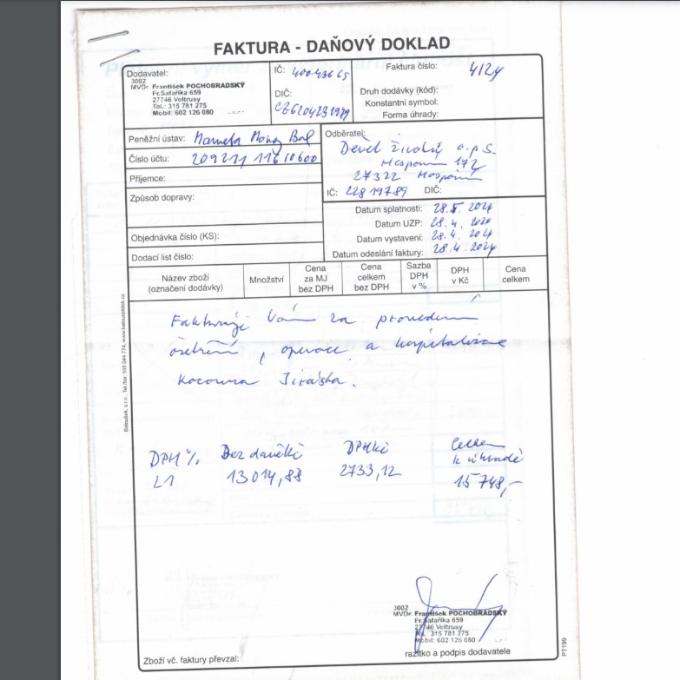 FAKTURA - DAŇOVÝ DOKLAD
Dodavatel:
3002
MVDr. František POCHOBRADSKÝ
Fr.Šafaříka 659
27746 Veltrusy
Tel.: 315 781 275
Mobil: 602 126 080
IČ: 40043665
DIČ:
CZ6204231989
Faktura číslo: 4124
Druh dodávky (kód):
Konstantní symbol:
Forma úhrady:
Peněžní ústav: Moneta Money
Číslo účtu:
Příjemce:
Způsob dopravy:
Objednávka číslo (KS):
Dodací list číslo:
Odběratel:
o.p.s.
Hospozín 172
27322 Hospozín
IČ: 22819789 DIČ:
Datum splatnosti: 28.5. 2024
Datum UZP: 28.4. 2024
Datum vystavení: 28.4. 2024
Datum odeslání faktury: 28.4. 2024
Název zboží (označení dodávky)
Množství
Cena za MJ bez DPH
Cena celkem bez DPH
Sazba DPH v %
DPH v Kč
Cena celkem
Fakturuji Vám za provedení
ošetření, operace a hospitalizace
kocoura Jiráska.
DPH % Bez daně Kč DPH Kč Celkem
k úhradě
21 13014,88 2733,12 15748,-
3002
MVDr. František POCHOBRADSKÝ
Fr.Šafaříka 659
27746 Veltrusy
Tel.: 315 781 275
Mobil: 602 126 080
razítko a podpis dodavatele
Zboží vč. faktury převzal:
PT199